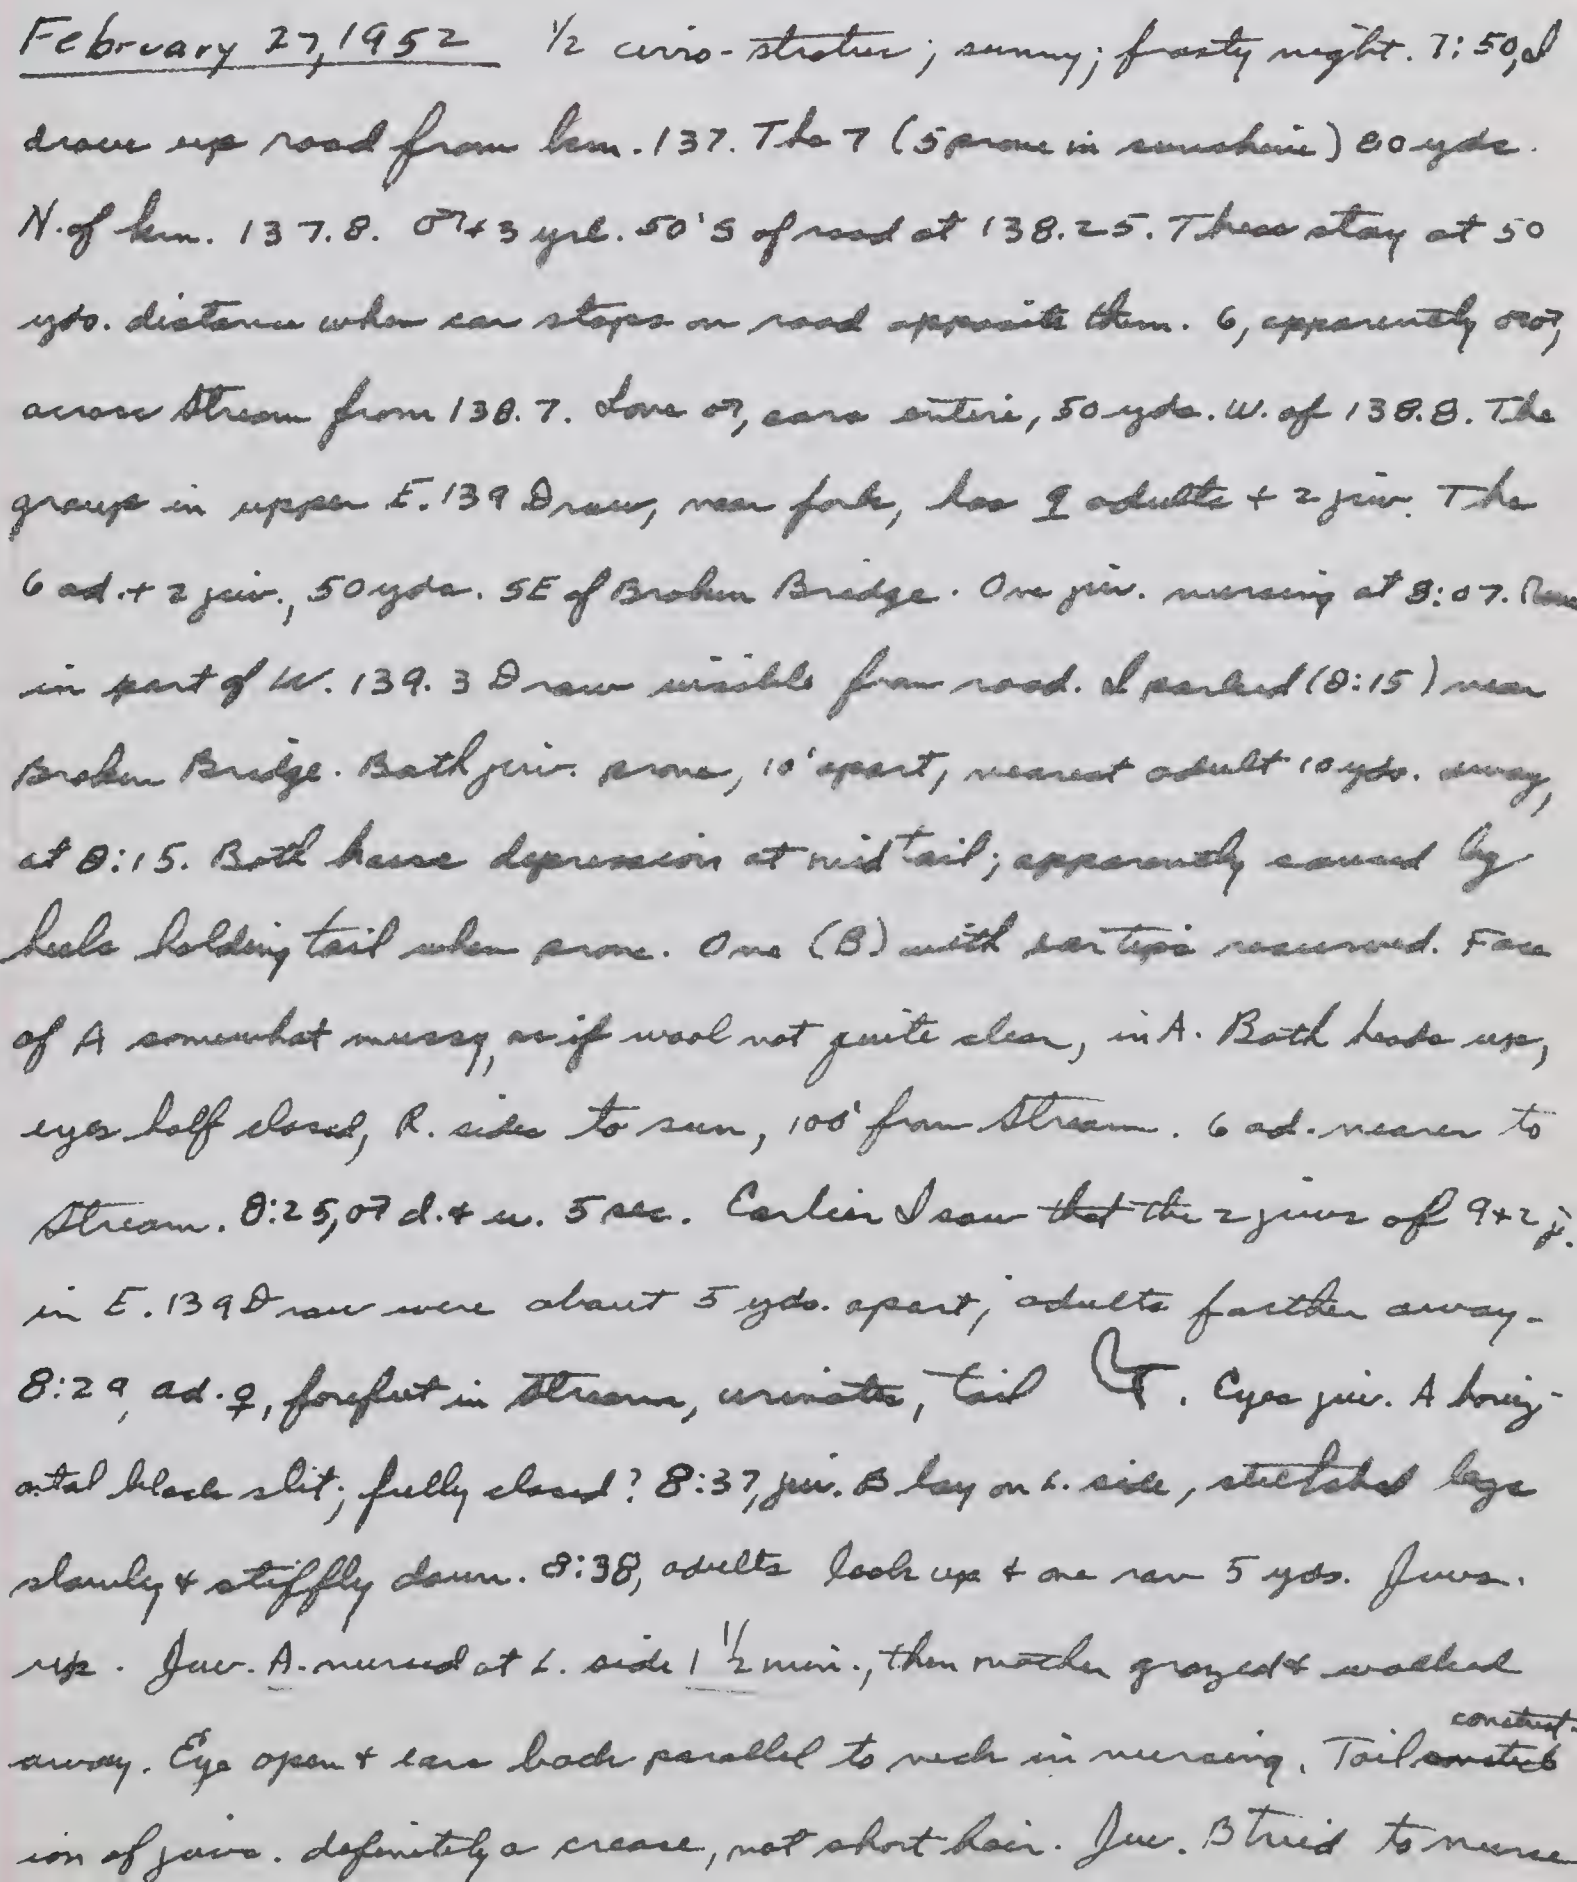 February 27, 1952 1/2 cirro-stratus; sunny; frosty night. 7:50, I
drove up road from km. 137. The 7 (5 prone in sunshine) 80 yds.
N. of km. 137.8. ♂+3 yrl. 50' S of road at 138.25. These stay at 50
yds. distance when car stops on road opposite them. 6, apparently ♂♂,
across stream from 138.7. Lone ♂, ears entire, 50 yds. W. of 138.8. The
group in upper E. 139 Draw, near fork, has 9 adults + 2 juv. The
6 ad. + 2 juv., 50 yds. SE of Broken Bridge. One juv. nursing at 8:07. None
in part of W. 139.3 Draw visible from road. I parked (8:15) near
Broken Bridge. Both juv. prone, 10' apart, nearest adult 10 yds. away,
at 8:15. Both have depression at mid tail; apparently caused by
heels holding tail when prone. One (B) with ear tips recurved. Face
of A somewhat mussy, as if wool not quite clear, in A. Both heads up,
eyes half closed, R. sides to sun, 100' from stream. 6 ad. nearer to
stream. 8:25, ♂ d. & u. 5 sec. Earlier I saw that the 2 juvs of 9+2 j.
in E. 139 Draw were about 5 yds. apart; adults farther away.
8:29, ad. ♀, forefeet in stream, urinates, tail . Eyes juv. A horiz-
ontal black slit; fully closed? 8:37, juv. B lay on L. side, stretched legs
slowly & stiffly down. 8:38, adults look up & one ran 5 yds. Juvs.
up. Juv. A. nursed at L. side 1 1/2 min., then mother grazed & walked
away. Eye open & ears back parallel to neck in nursing. Tail constrict-
ion of juvs. definitely a crease, not short hair. Juv. B tried to nurse